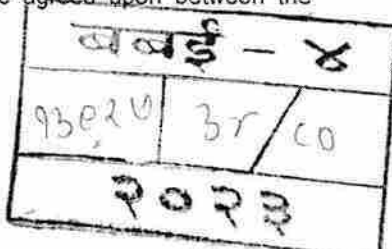 agreed upon between the
बबई - ४
१३९२७ / ८०
२०२३